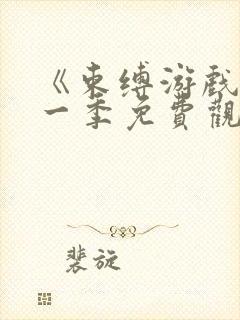 《束缚游戏
一季免費觀
裴旋